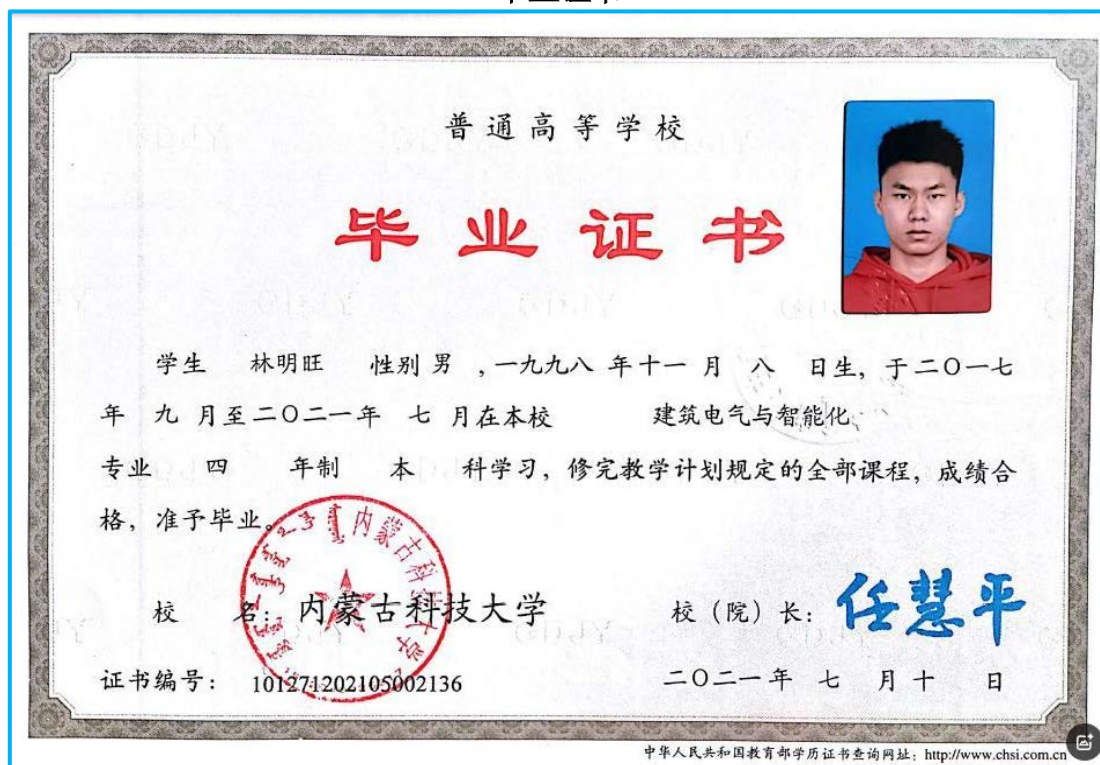 普通高等学校
毕业证书
学生 林明旺 性别 男 ,一九九八 年十一 月 八 日生, 于二〇一七
年 九 月至二〇二一年 七 月在本校 建筑电气与智能化
专业 四 年制 本 科学习, 修完教学计划规定的全部课程, 成绩合
格, 准予毕业。
内蒙古科技大学
校 名: 内蒙古科技大学 校(院)长: 任慧平
证书编号: 101271202105002136 二〇二一年 七 月十 日
中华人民共和国教育部学历证书查询网址: http://www.chsi.com.cn